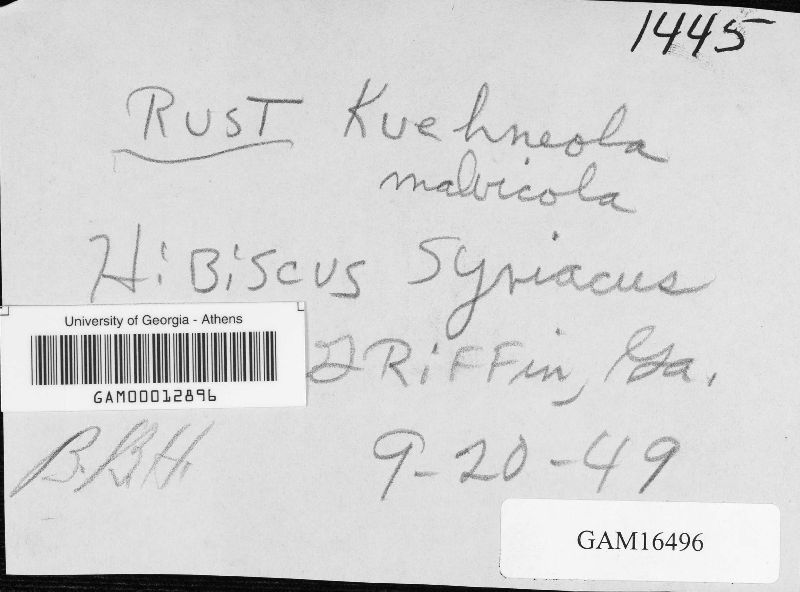 1445
RUST Kuehneola
malvicola
HiBiScus Syriacus
University of Georgia - Athens
GAM00012896
GRiFFin, Ga.
B.B.H. 9-20-49
GAM16496